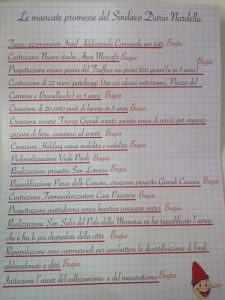 Le mancate promesse del Sindaco Dario Nardella
Tasse: azzeramento Irpef Addizionale Comunale per tutti Bugia
Costruzione Nuovo stadio Area Mercafir Bugia
Progettazione nuovo piano del Traffico nei primi 100 giorni ( o in 5 anni) Bugia
Costruzione di 22 nuovi parcheggi ( tra cui alcuni sotterranei, Piazza del
Carmine e Brunelleschi) in 5 anni Bugia
Creazione di 20.000 posti di lavoro in 5 anni Bugia
Creazione società Firenze Grandi eventi: società unica di servizi per organiz-
zazione di fiere, congressi ed eventi Bugia
Creazione Holding unica mobilità e viabilità Bugia
Pedonalizzazione Viale Paoli Bugia
Realizzazione progetto San Lorenzo Bugia
Riqualificazione Parco delle Cascine, creazione progetto Grandi Cascine Bugia
Costruzione Termovalorizzatore Case Passerini Bugia
Progettazione piattaforma unica logistica consegna merci Bugia
Realizzazione San Salvi del Polo della Memoria né ha riqualificato l'area
che è fra le più degradate della città Bugia
Ripopolazione zone commerciali per combattere la desertificazione di fondi
abbandonati o sfitti Bugia
Istituzione I oscar del collezionismo e del mecenatismo Bugia